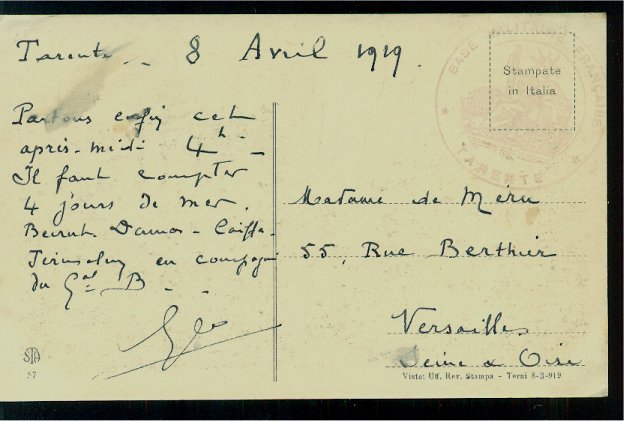 Tarente .. 8 Avril 1919.
BASE MILITAIRE FRANÇAISE
TARENTE
Stampate
in Italia
Partons enfin cet
après-midi 4h -
Il faut compter
4 jours de mer.
Beirut. Damas - Caiffa.
Jérusalem en compagnie
du Gal B - .
Madame de Méru
55, Rue Berthier
Versailles
Seine & Oise
STA
57
Visto: Uff. Rev. Stampa - Terni 8-3-919